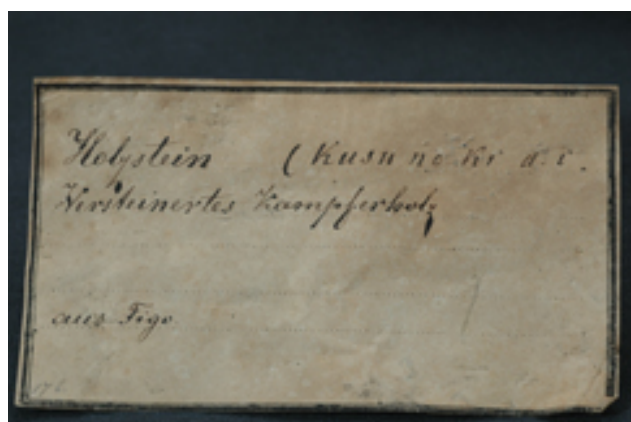 Holzstein (Kusu no Ki d. i.
Versteinertes Kampferholz
aus Figo